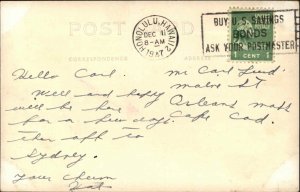 POST CARD
CORRESPONDENCE
ADDRESS
HONOLULU, HAWAII 2
DEC 11
8-AM
1947
BUY U.S. SAVINGS
BONDS
ASK YOUR POSTMASTER
1 CENT 1
Hello Carl.
Well and happy
will be here
for a few days.
then off to
Sydney.
Your chum
Mr Carl Lund.
Main St
Orleans Mass
Cape Cod.